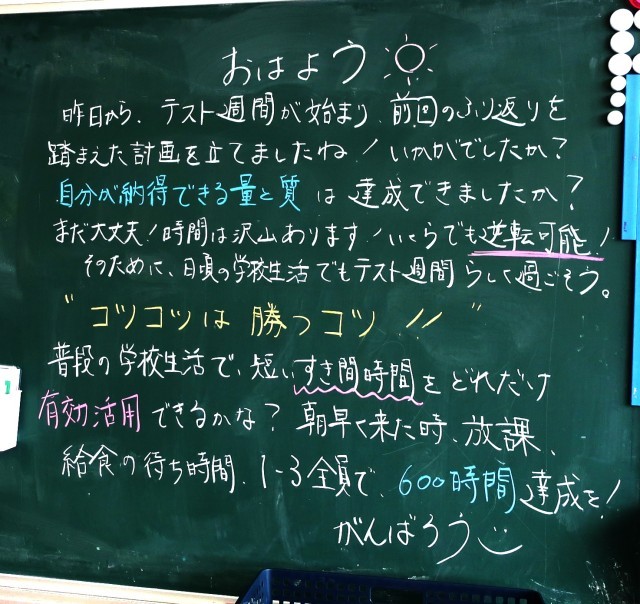 おはよう
昨日から、テスト週間が始まり、前回のふり返りを
踏まえた計画を立てましたね！いかがでしたか？
自分が納得できる量と質は達成できましたか？
まだ大丈夫！時間は沢山あります！いくらでも逆転可能！
そのために、日頃の学校生活でもテスト週間らしく過ごそう。
"コツコツは勝つコツ！！"
普段の学校生活で、短いすき間時間をどれだけ
有効活用できるかな？朝早く来た時、放課、
給食の待ち時間、1-3全員で、600時間達成を！
がんばろう